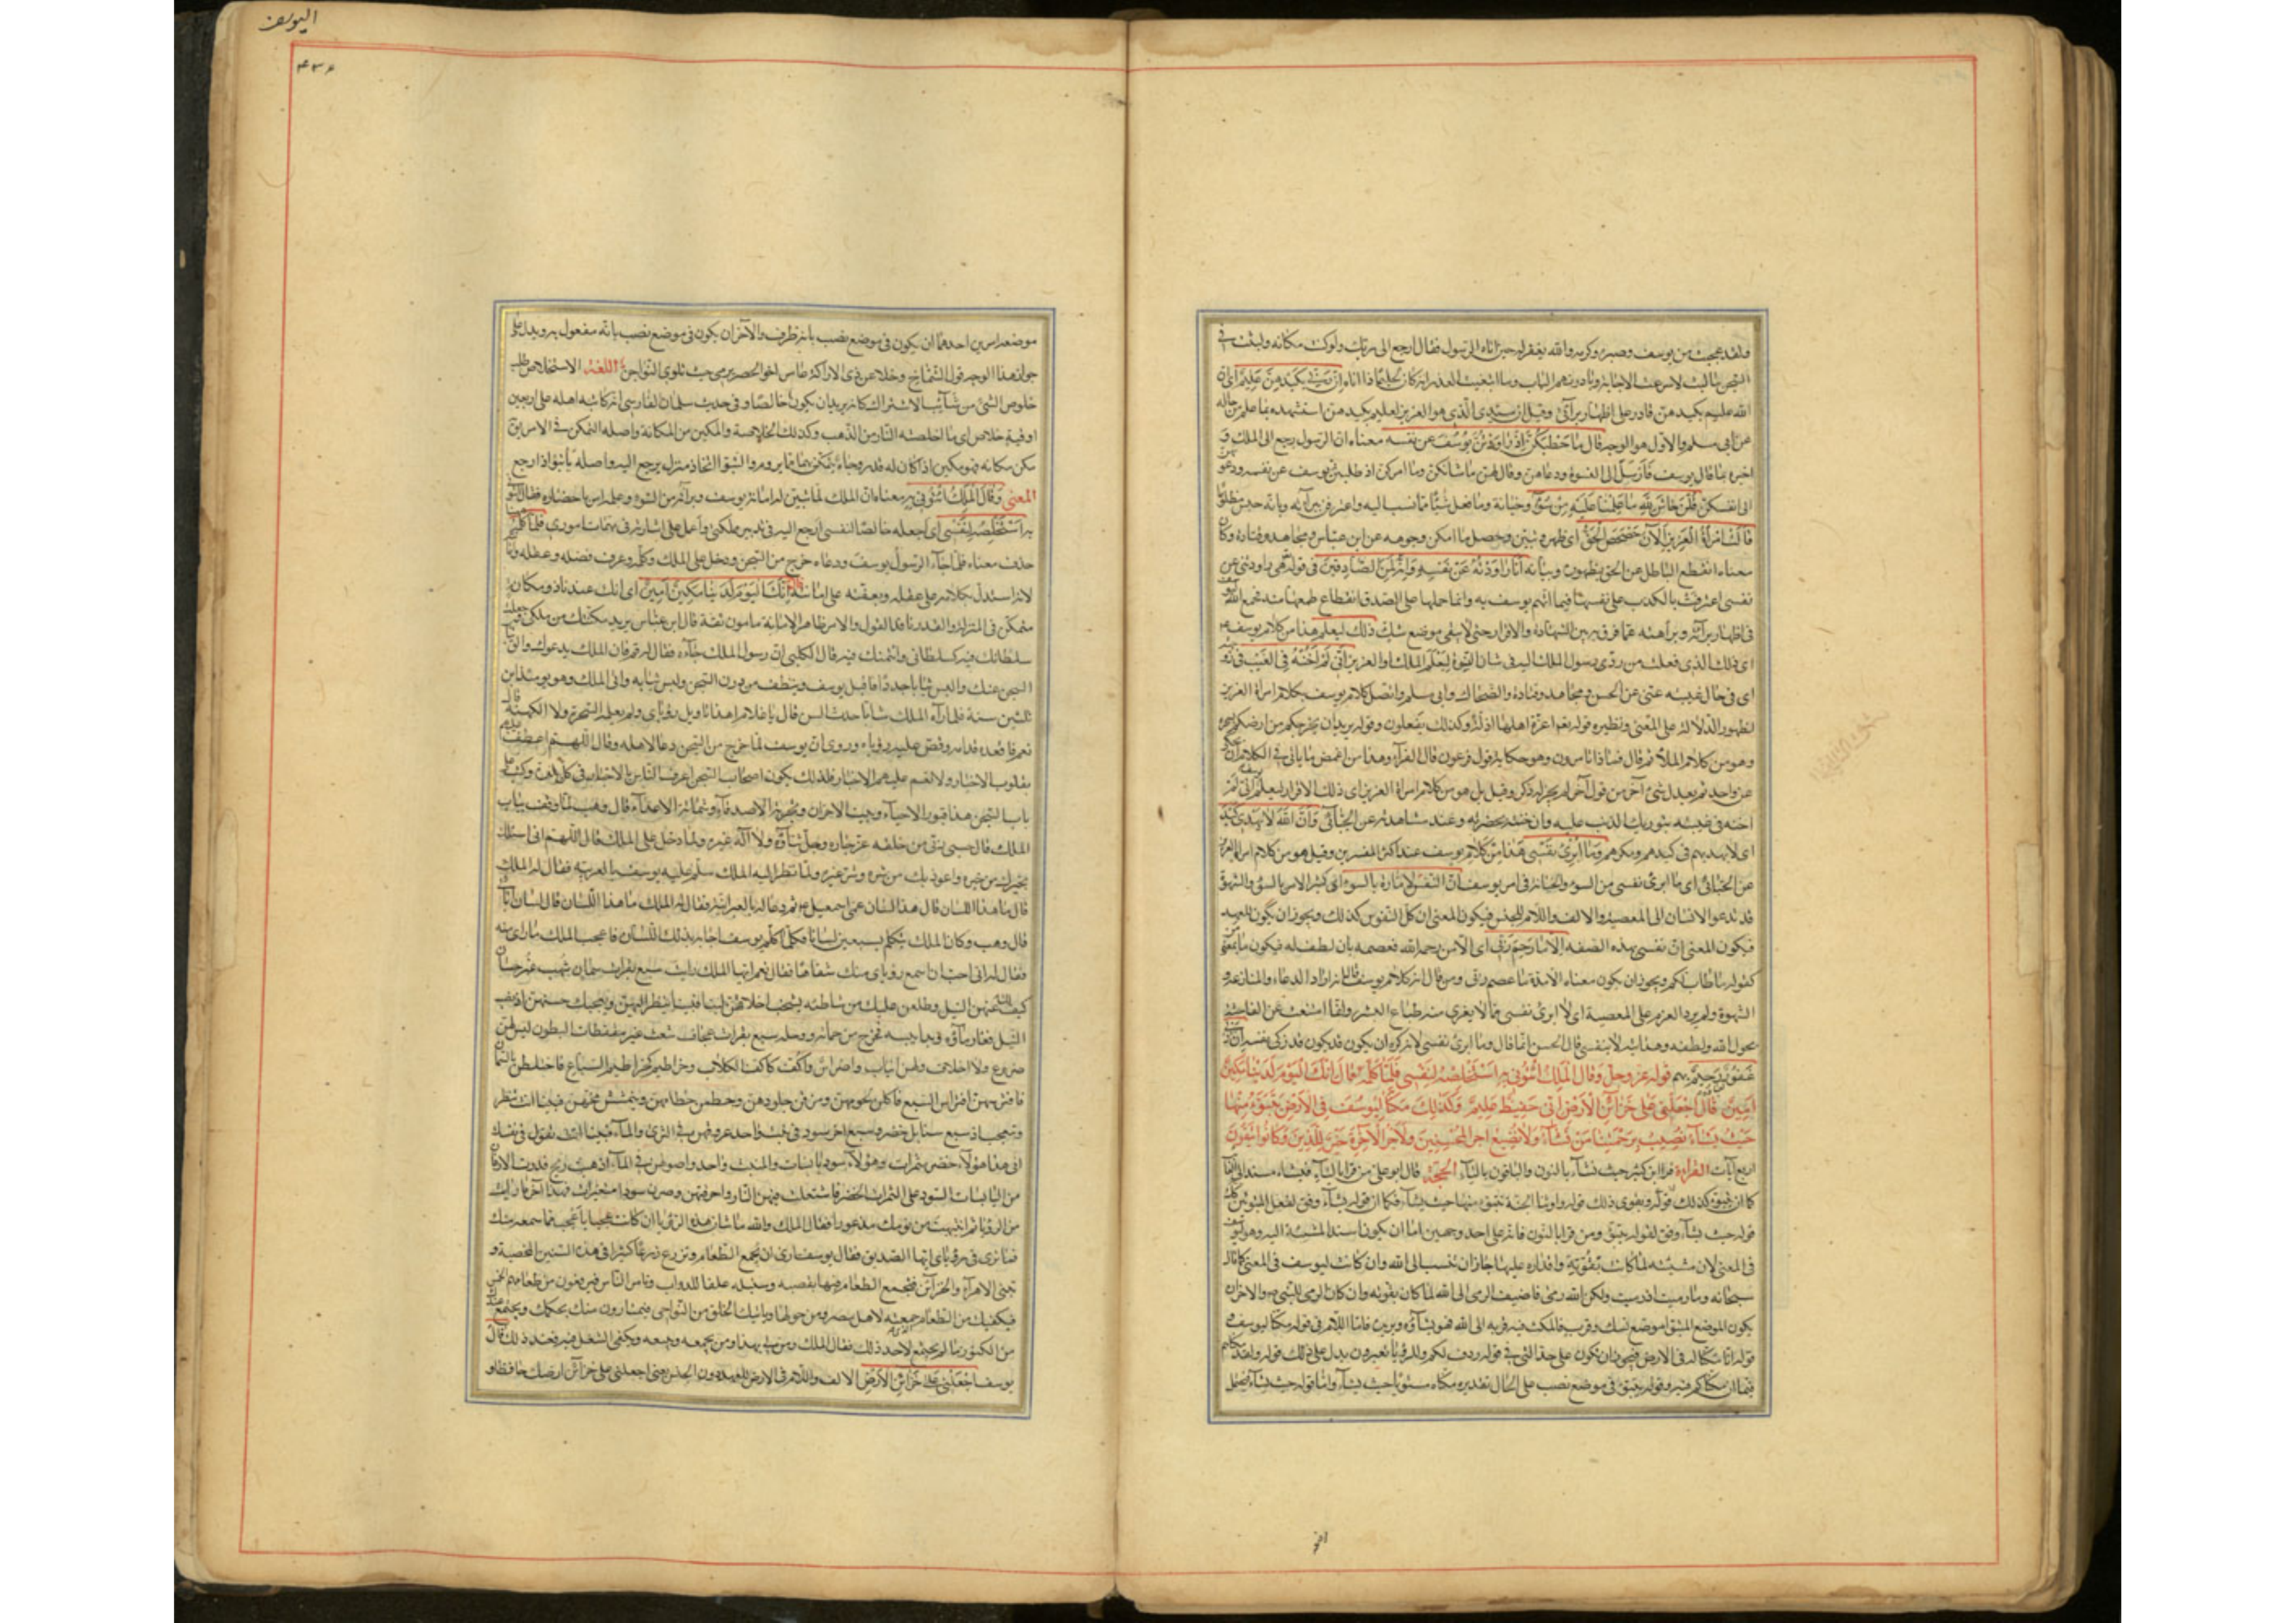 ولقد عجبت من يوسف وصبره وكرمه والله يغفر له حين اتاه الرسول فقال ارجع الى ربك ولو كنت مكانه ولبثت في
السجن ما لبث لاسرعت الاجابة وبادرتهم الباب وما ابتغيت العذر انه كان لحليما ذا اناة ان ربي بكيدهن عليم اي ان
الله عليم بكيدهن قادر على اظهار براءتي وقيل ان سيدي الذي هو العزيز لعليم بكيدهن استشهده بما علم من حاله
عن ابي مسلم والاول هو الوجه قال ما خطبكن اذ راودتن يوسف عن نفسه معناه ان الرسول رجع الى الملك و
اخبره بما قال يوسف فارسل الى النسوة ودعاهن وقال لهن ما شانكن وما امركن اذ طلبتن يوسف عن نفسه ودعوتنه
الى انفسكن قلن حاش لله ما علمنا عليه من سوء وخيانة وما فعل شيئا مما نسب اليه واعترفن ببراءته وبانه حبس مظلوما
قالت امراة العزيز الآن حصحص الحق اي ظهر وتبين وحصل ما امكن وجوهه عن ابن عباس ومجاهد وقتادة وكان
معناه انقطع الباطل عن الحق بظهوره وبيانه انا راودته عن نفسه وانه لمن الصادقين في قوله هي راودتني عن
نفسي اعترفت بالكذب على نفسها فيما اتهم يوسف به وانما حملها على الصدق انقطاع طمعها منه فجمع الله
في اظهار براءته وبراهينه مما قرف به بين الشهادة والاقرار حتى لا يبقى موضع شك ذلك ليعلم هذا من كلام يوسف
اي ذلك الذي فعلت من ردي رسول الملك اليه في شان النسوة ليعلم الملك او العزيز اني لم اخنه بالغيب في زوجته
اي في حال غيبته عني عن الحسن ومجاهد وقتادة والضحاك وابي مسلم واتصل كلام يوسف بكلام امراة العزيز
لظهور الدلالة على المعنى ونظيره قوله تعالى اعزة اهلها اذلة وكذلك يفعلون وقوله يريد ان يخرجكم من ارضكم
وهو من كلام الملا ثم قال فماذا تامرون وهو حكاية قول فرعون قال الفراء وهذا من اغمض ما ياتي في الكلام ان
عن واحد ثم يعدل الى شيء آخر من قول آخر لم يجر له ذكر وقيل بل هو من كلام امراة العزيز اي ذلك الاقرار ليعلم يوسف اني لم
اخنه في غيبته بتوريك الذنب عليه وان خنته بحضرته وعند مشاهدته عن الجبائي وان الله لا يهدي كيد
اي لا يهديهم في كيدهم ومكرهم وما ابرئ نفسي هذا من كلام يوسف عند اكثر المفسرين وقيل هو من كلام امراة العزيز
عن الجبائي اي ما ابرئ نفسي من السوء والخيانة في امر يوسف ان النفس لامارة بالسوء اي كثيرة الامر بالسوء والشهوة
قد تدعو الانسان الى المعصية والالف واللام للجنس فيكون المعنى ان كل النفوس كذلك ويجوز ان يكون للعهد
فيكون المعنى ان نفسي بهذه الصفة الا ما رحم ربي اي الا من رحمه الله فعصمه بان لطف له فيكون ما بمعنى من
كقوله ما طاب لكم ويجوز ان يكون معناه الا مدة ما عصم ربي ومن قال انه كلام يوسف قال انه اراد الدعاء والمنازعة و
الشهوة ولم يرد العزم على المعصية اي لا ابرئ نفسي مما لا يعرى منه طباع البشر وانما امتنعت عن الفاحشة
بحول الله ولطفه وهدايته لا بنفسي قال الحسن انما قال وما ابرئ نفسي لانه كره ان يكون قد زكى نفسه ان ربي
غفور رحيم بهم قوله عز وجل وقال الملك ائتوني به استخلصه لنفسي فلما كلمه قال انك اليوم لدينا مكين
امين قال اجعلني على خزائن الارض اني حفيظ عليم وكذلك مكنا ليوسف في الارض يتبوء منها
حيث يشاء نصيب برحمتنا من نشاء ولا نضيع اجر المحسنين ولاجر الآخرة خير للذين آمنوا وكانوا يتقون
اربع آيات القراءة قرا ابن كثير حيث نشاء بالنون والباقون بالياء الحجة قال ابو علي من قرا بالياء فيشاء مسند الى
كما ان يتبوء كذلك قوله ويقوي ذلك قوله واورثنا الجنة نتبوء منها حيث نشاء فكما ان قوله نشاء وفق لفعل المتبوئين
قوله حيث يشاء وفق لقوله يتبوء ومن قرا بالنون فانه على احد وجهين اما ان يكون اسند المشية اليه وهو ليوسف
في المعنى لان مشيته لما كانت بقوته واقداره عليها جاز ان تنسب الى الله وان كانت ليوسف في المعنى كما قال
سبحانه وما رميت اذ رميت ولكن الله رمى فاضيف الرمي الى الله لما كان بقوته وان كان الرمي للنبي والآخر ان
يكون الموضع المتبوا موضع نسك وقرب فالمكث فيه قربة الى الله فهو يشاؤه ويريده فاما اللام في قوله مكنا ليوسف و
قوله انا مكنا له في الارض فيجوز ان يكون على حد التي في قوله ردف لكم وللرؤيا تعبرون يدل على ذلك قوله ولقد مكناهم
فيما ان مكناكم فيه وقوله يتبوء في موضع نصب على الحال تقديره مكناه متبوئا حيث يشاء واما قوله حيث يشاء فيحتمل
اليوسف
۴۳۴
موضعه امرين احدهما ان يكون في موضع نصب بانه ظرف والآخر ان يكون في موضع نصب بانه مفعول به ويدل على
جواز هذا الوجه قول الشماخ وخلاءها عن ذي الاراكة عامر اخو الخضر يرمي حيث تكوى النواحز اللغة الاستخلاص طلب
خلوص الشيء من شائب الاشتراك كانه يريد ان يكون خالصا وفي حديث سلمان الفارسي انه كاتبه اهله على اربعين
اوقية خلاص اي ما اخلصته النار من الذهب وكذلك الخلاصة والمكين من المكانة واصله التمكن في الامر يقال
مكن مكانة فهو مكين اذا كان له قدر وجاه يتمكن بهما مما يروم والتبوا اتخاذ منزل يرجع اليه واصله باء يبوء اذا رجع
المعنى وقال الملك ائتوني به معناه ان الملك لما تبين له امانة يوسف وبراءته من السوء وعلمه امر باحضاره فقال ائتوني
به استخلصه لنفسي اي اجعله خالصا لنفسي ارجع اليه في تدبير مملكتي واعمل على اشارته في مهمات اموري فلما كلمه
حذف معناه فلما جاء الرسول يوسف ودعاه خرج من السجن ودخل على الملك وكلمه وعرف فضله وعقله وامانته
لانه استدل بكلامه على عقله وبعفته على امانته قال انك اليوم لدينا مكين امين اي انك عندنا ذو مكانة
متمكن في المنزلة والقدر نافذ القول والامر ظاهر الامانة مامون ثقة قال ابن عباس يريد مكنتك من ملكي وجعلت
سلطانك فيه كسلطاني وائتمنتك فيه قال الكلبي ان رسول الملك جاءه فقال له قم فان الملك يدعوك والق ثياب
السجن عنك والبس ثيابا جددا فاقبل يوسف وتنظف من درن السجن ولبس ثيابه واتى الملك وهو يومئذ ابن
ثلثين سنة فلما رآه الملك شابا حدث السن قال يا غلام هذا تاويل رؤياي ولم يعلمه السحرة ولا الكهنة قال
نعم فاقعده قدامه وقص عليه رؤياه وروي ان يوسف لما خرج من السجن دعا لاهله وقال اللهم اعطف عليهم
بقلوب الاخيار ولا تعم عليهم الاخبار فلذلك يكون اصحاب السجن اعرف الناس بالاخبار في كل بلدة وكتب على
باب السجن هذا قبور الاحياء وبيت الاحزان وتجربة الاصدقاء وشماتة الاعداء قال وهب لما وقف بباب
الملك قال حسبي ربي من خلقه عز جاره وجل ثناؤه ولا اله غيره ولما دخل على الملك قال اللهم اني اسئلك
بخيرك من خيره واعوذ بك من شره وشر غيره ولما نظر اليه الملك سلم عليه يوسف بالعربية فقال له الملك
قال ما هذا اللسان قال هذا لسان عمي اسمعيل ثم دعا له بالعبرانية فقال له الملك ما هذا اللسان قال لسان آبائي
قال وهب وكان الملك يتكلم بسبعين لسانا فكلما كلم يوسف اجابه بذلك اللسان فاعجب الملك ما راى منه
فقال له اني احب ان اسمع رؤياي منك شفاها فقال نعم ايها الملك رايت سبع بقرات سمان شهب غر حسان
كشف عنهن النيل فطلعن عليك من شاطئه يشخب اخلافهن لبنا فبينا تنظر اليهن ويعجبك حسنهن اذ نضب
النيل فغار ماؤه وبدا يبسه فخرج من حمائه ووحله سبع بقرات عجاف شعث غبر مقلصات البطون ليس لهن
ضروع ولا اخلاف ولهن انياب واضراس واكف كاكف الكلاب وخراطيم كخراطيم السباع فاختلطن بالسمان
فافترسهن افتراس السبع فاكلن لحومهن ومزقن جلودهن وحطمن عظامهن وتمششن مخهن فبينا انت تنظر
وتتعجب اذ سبع سنابل خضر وسبع اخر سود في منبت واحد عروقهن في الثرى والماء فبينا انت تقول في نفسك
انى هذا هؤلاء خضر مثمرات وهؤلاء سود يابسات والمنبت واحد واصولهن في الماء اذ هبت ريح فذرت الارفات
من اليابسات السود على الثمرات الخضر فاشتعلت فيهن النار واحرقتهن وصرن سودا متغيرات فهذا آخر ما رايت
من الرؤيا ثم انتبهت من نومك مذعورا فقال الملك والله ما شان هذه الرؤيا وان كانت عجبا باعجب مما سمعته منك
فما ترى في رؤياي ايها الصديق فقال يوسف ارى ان تجمع الطعام وتزرع زرعا كثيرا في هذه السنين المخصبة و
تبني الاهراء والخزائن فتجمع الطعام فيها بقصبه وسنبله علفا للدواب وتامر الناس فيرفعون من طعامهم الخمس
فيكفيك من الطعام جمعته لاهل مصر ومن حولها وياتيك الخلق من النواحي فيمتارون منك بحكمك ويجتمع عندك
من الكنوز ما لم يجتمع لاحد ذلك فقال الملك ومن لي بهذا ومن يجمعه ويبيعه ويكفي الشغل فيه فعند ذلك قال
يوسف اجعلني على خزائن الارض الالف واللام في الارض للعهد دون الجنس يعني اجعلني على خزائن ارضك حافظا و